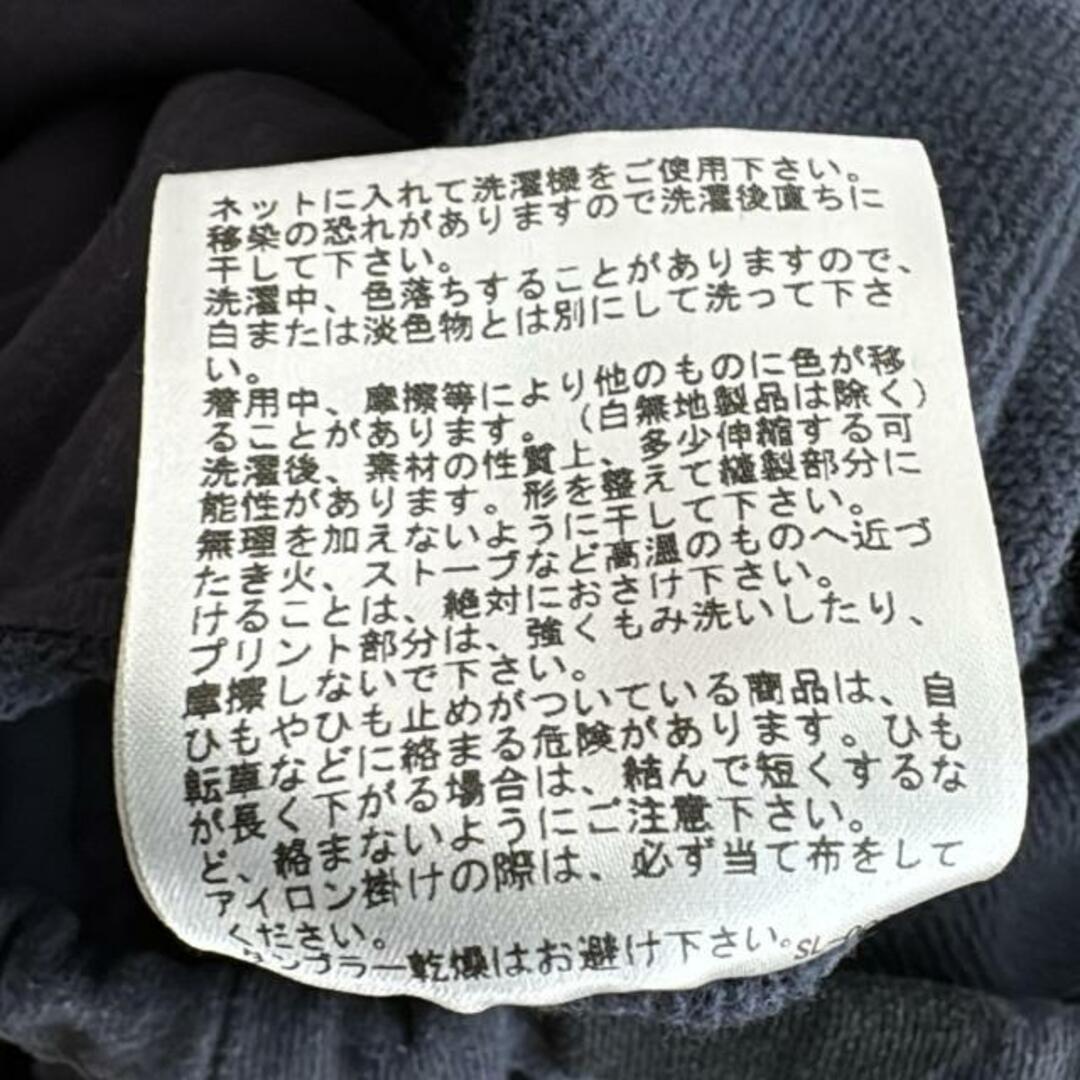 ネットに入れて洗濯機をご使用下さい。
移染の恐れがありますので洗濯後直ちに
干して下さい。
洗濯中、色落ちすることがありますので、
白または淡色物とは別にして洗って下さ
い。
着用中、摩擦等により他のものに色が移
ることがあります。（白無地製品は除く）
洗濯後、素材の性質上、多少伸縮する可
能性があります。形を整えて縫製部分に
無理を加えないように干して下さい。
たき火、ストーブなど高温のものへ近づ
けることは、絶対におさけ下さい。
プリント部分は、強くもみ洗いしたり、
摩擦しないで下さい。
ひもやひも止めがついている商品は、自
転車などに絡まる危険があります。ひも
が長く下がる場合は、結んで短くするな
ど、絡まないようにご注意下さい。
アイロン掛けの際は、必ず当て布をして
ください。
タンブラー乾燥はお避け下さい。